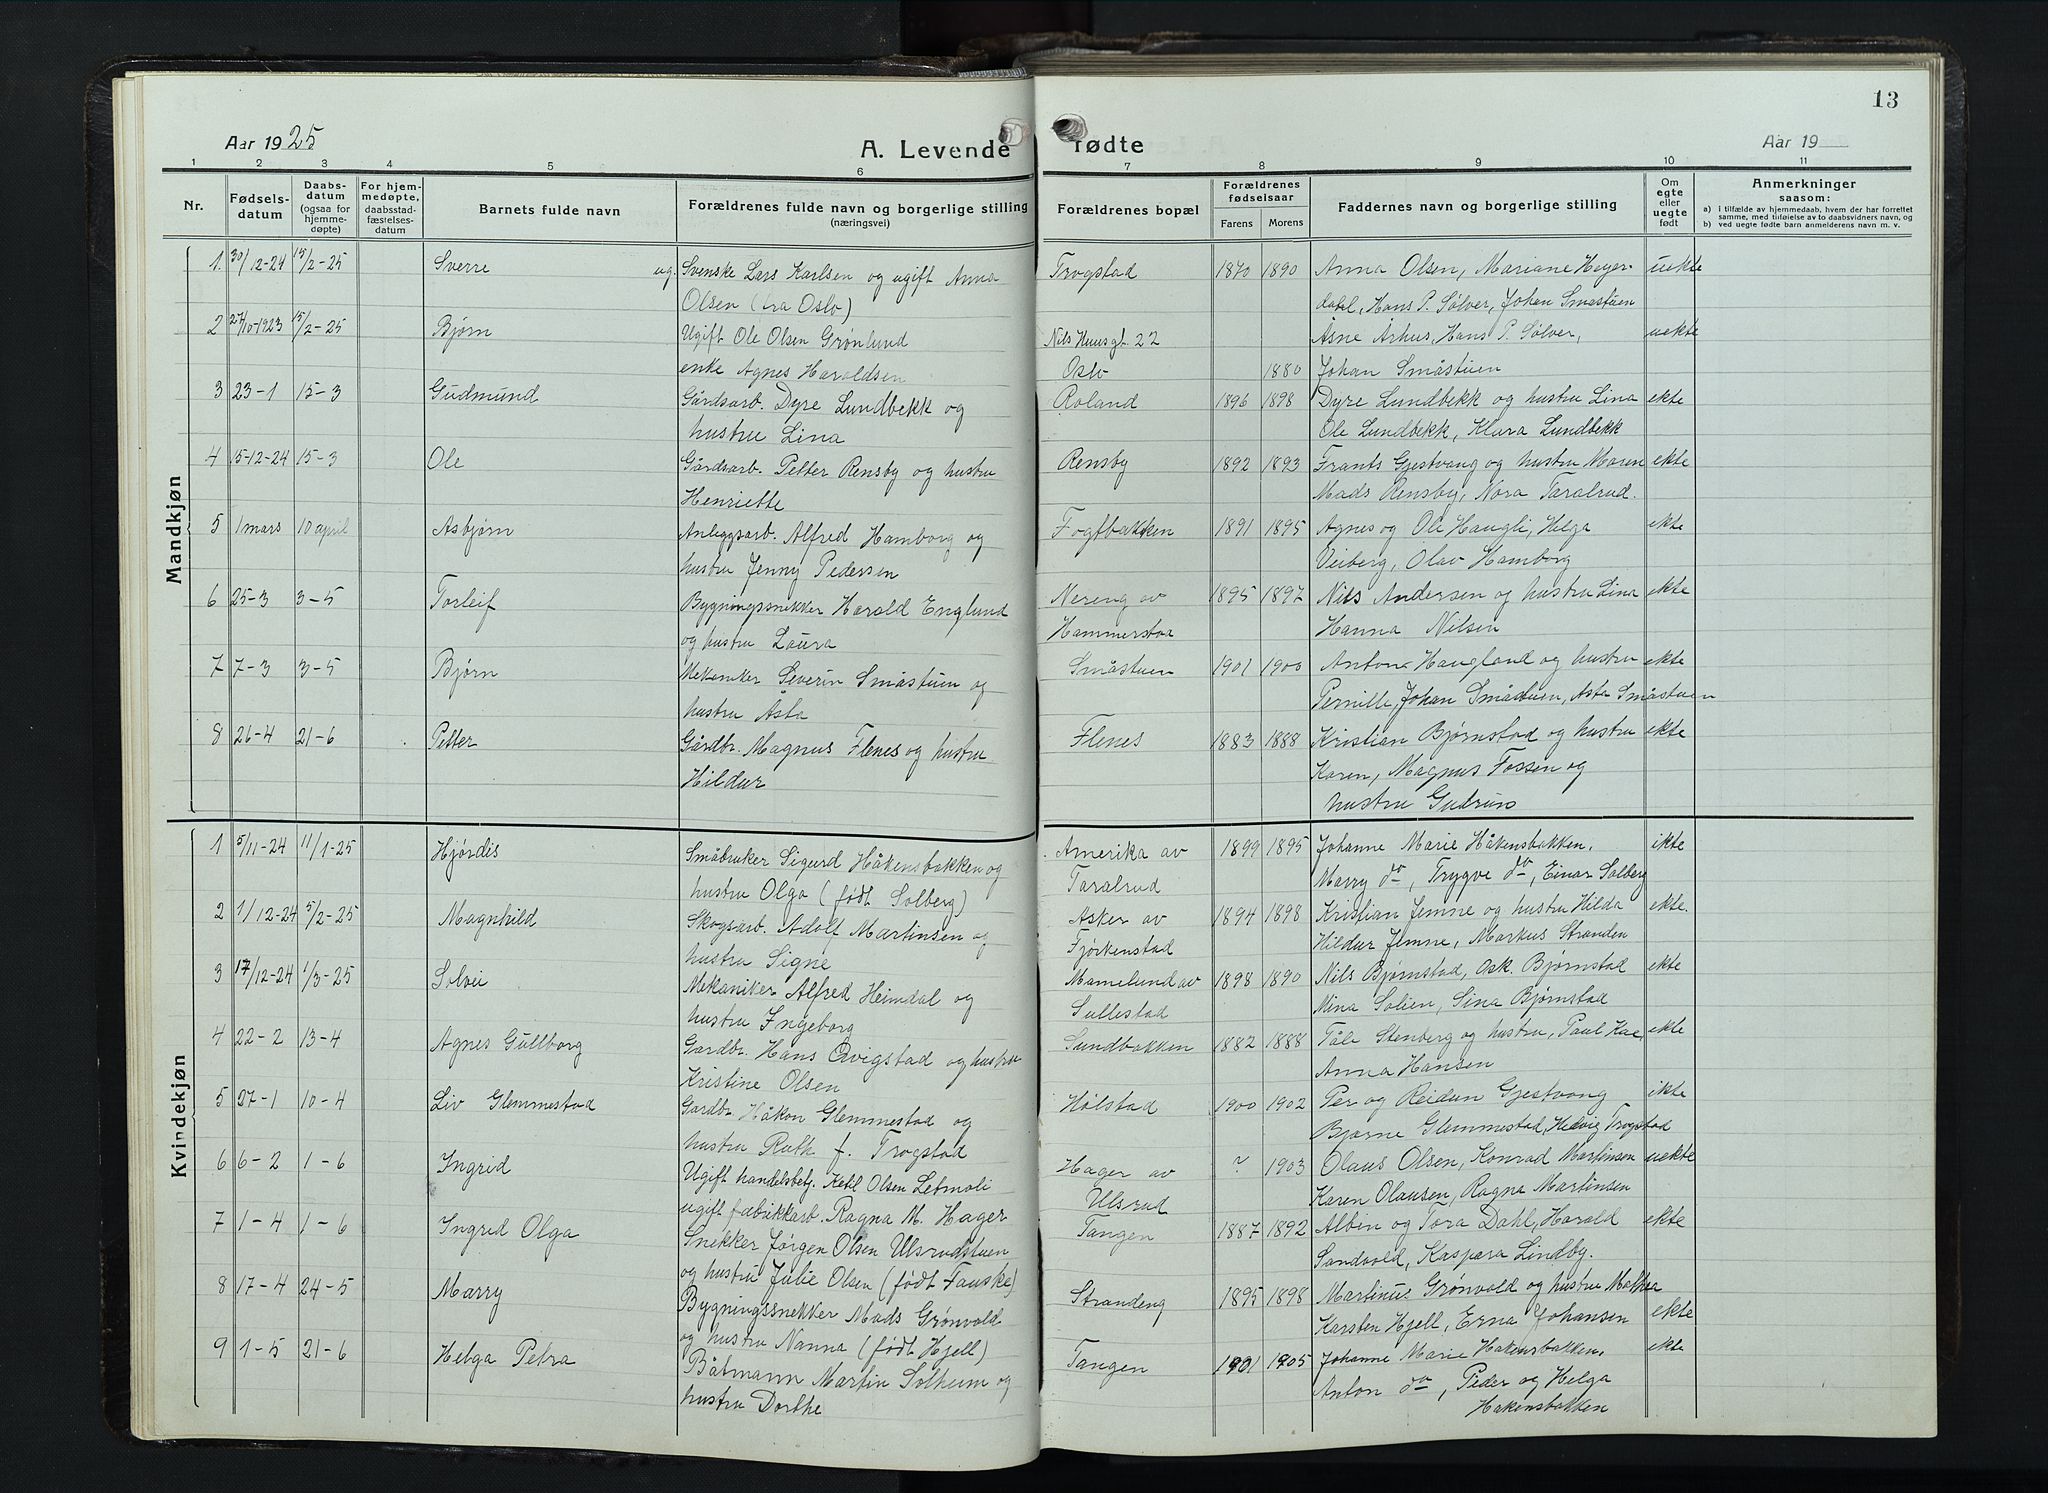 13
Aar 1925
A. Levende
fødte
Aar 19
1 2 3 4 5 6 7 8 9 10 11
Nr.
Fødsels-
datum
Daabs-
datum
(ogsaa for
hjemme-
døpte)
For hjem-
medøpte,
daabsstad-
fæstelses-
datum
Barnets fulde navn
Forældrenes fulde navn og borgerlige stilling
(næringsvei)
Forældrenes bopæl
Forældrenes
fødselsaar
Farens Morens
Faddernes navn og borgerlige stilling
Om
egte
eller
uegte
født
Anmerkninger
saasom:
a) i tilfælde av hjemmedaab, hvem der har forrettet
samme, med tilføielse av to daabsvidners navn, og
b) ved uegte fødte barn anmelderens navn m. v.
Mandkjøn
1 30/12-24 15/2-25 Sverre ug. Svenske Lars Karlsen og ugift Anna Trogstad 1870 1890 Anna Olsen, Mariane Heyer- uekte
Olsen (fra Oslo) dahl, Hans P. Sølver, Johan Småstuen
2 27/10-1923 15/2-25 Bjørn Ugift Ole Olsen Grønlund Nils Huus gt. 22 Åsne Århus, Hans P. Sølver, uekte
enke Agnes Haraldsen Oslo 1880 Johan Småstuen
3 23-1 15-3 Gudmund Gårdsarb. Dyre Lundbekk og Roland 1896 1898 Dyre Lundbekk og hustru Lina ekte
hustru Lina Ole Lundbekk, Klara Lundbekk
4 15-12-24 15-3 Ole Gårdsarb. Petter Rensby og hustru Rensby 1892 1893 Frants Gjestvang og hustru Maren ekte
Henriette Mads Rensby, Nora Taralrud.
5 1 mars 10 april Asbjørn Anleggsarb. Alfred Hamborg og Fogtbakken 1891 1895 Agnes og Ole Haugli, Helga ekte
hustru Jenny Pedersen Veiberg, Olav Hamborg
6 25-3 3-5 Torleif Bygningssnekker Harald Englund Nereng av 1895 1897 Nils Andersen og hustru Lina ekte
og hustru Laura Hammerstad Hanna Nilsen
7 7-3 3-5 Bjørn Mekaniker Severin Småstuen og Småstuen 1901 1900 Anton Haugland og hustru ekte
hustru Åsta Pernille, Johan Småstuen, Asta Småstuen
8 26-4 21-6 Petter Gårdbr. Magnus Flenes og hustru Flenes 1883 1888 Kristian Bjørnstad og hustru ekte
Hildur Karen, Magnus Fossen og
hustru Gudrun
Kvindekjøn
1 5/11-24 11/1-25 Hjørdis Småbruker Sigurd Håkensbakken og Amerika av 1899 1895 Johanne Marie Håkensbakken, ekte
hustru Olga (født Solberg) Taralrud Marry do, Trygve do, Einar Solberg
2 1/12-24 5/2-25 Magnhild Skogsarb. Adolf Martinsen og Asker av 1894 1898 Kristian Jemne og hustru Hilda ekte.
hustru Signe Fjørkenstad Hildur Jemne, Markus Stranden
3 17/12-24 1/3-25 Solvei Mekaniker Alfred Heimdal og Mamelund av 1898 1890 Nils Bjørnstad, Osk. Bjørnstad ekte
hustru Ingeborg Sullestad Nina Solien, Sina Bjørnstad
4 22-2 13-4 Agnes Gullborg Gardbr. Hans Qvigstad og hustru Sundbakken 1882 1888 Tåle Stenberg og hustru, Paul Kae, ekte
Kristine Olsen Anna Hansen
5 27-1 10-4 Liv Glemmestad Gardbr. Håkon Glemmestad og Hølstad 1900 1902 Per og Reidun Gjestvang ekte
hustru Ruth f. Trogstad Bjarne Glemmestad, Hedvig Trogstad
6 6-2 1-6 Ingrid Ugift handelsbetj. Ketil Olsen Letmoli Hager av ? 1903 Olaus Olsen, Konrad Martinsen uekte
ugift fabrikkarb. Ragna M. Hager Ulsrud Karen Olausen, Ragna Martinsen
7 1-4 1-6 Ingrid Olga Snekker Jørgen Olsen Ulsrudstuen Tangen 1887 1892 Albin og Tora Dahl, Harald ekte
og hustru Julie Olsen (født Fauske) Sandvold, Kaspara Lindby.
8 17-4 24-5 Marry Bygningssnekker Mads Grønvold Strandeng 1895 1898 Martinus Grønvold og hustru Mathea
og hustru Nanna (født Hjell) Karsten Hjell, Erna Johansen ekte
9 1-5 21-6 Helga Petra Båtmann Martin Solheim og Tangen 1901 1905 Johanne Marie Hakensbakken, ekte
hustru Dorthe Anton do, Peder og Helga
Hakensbakken